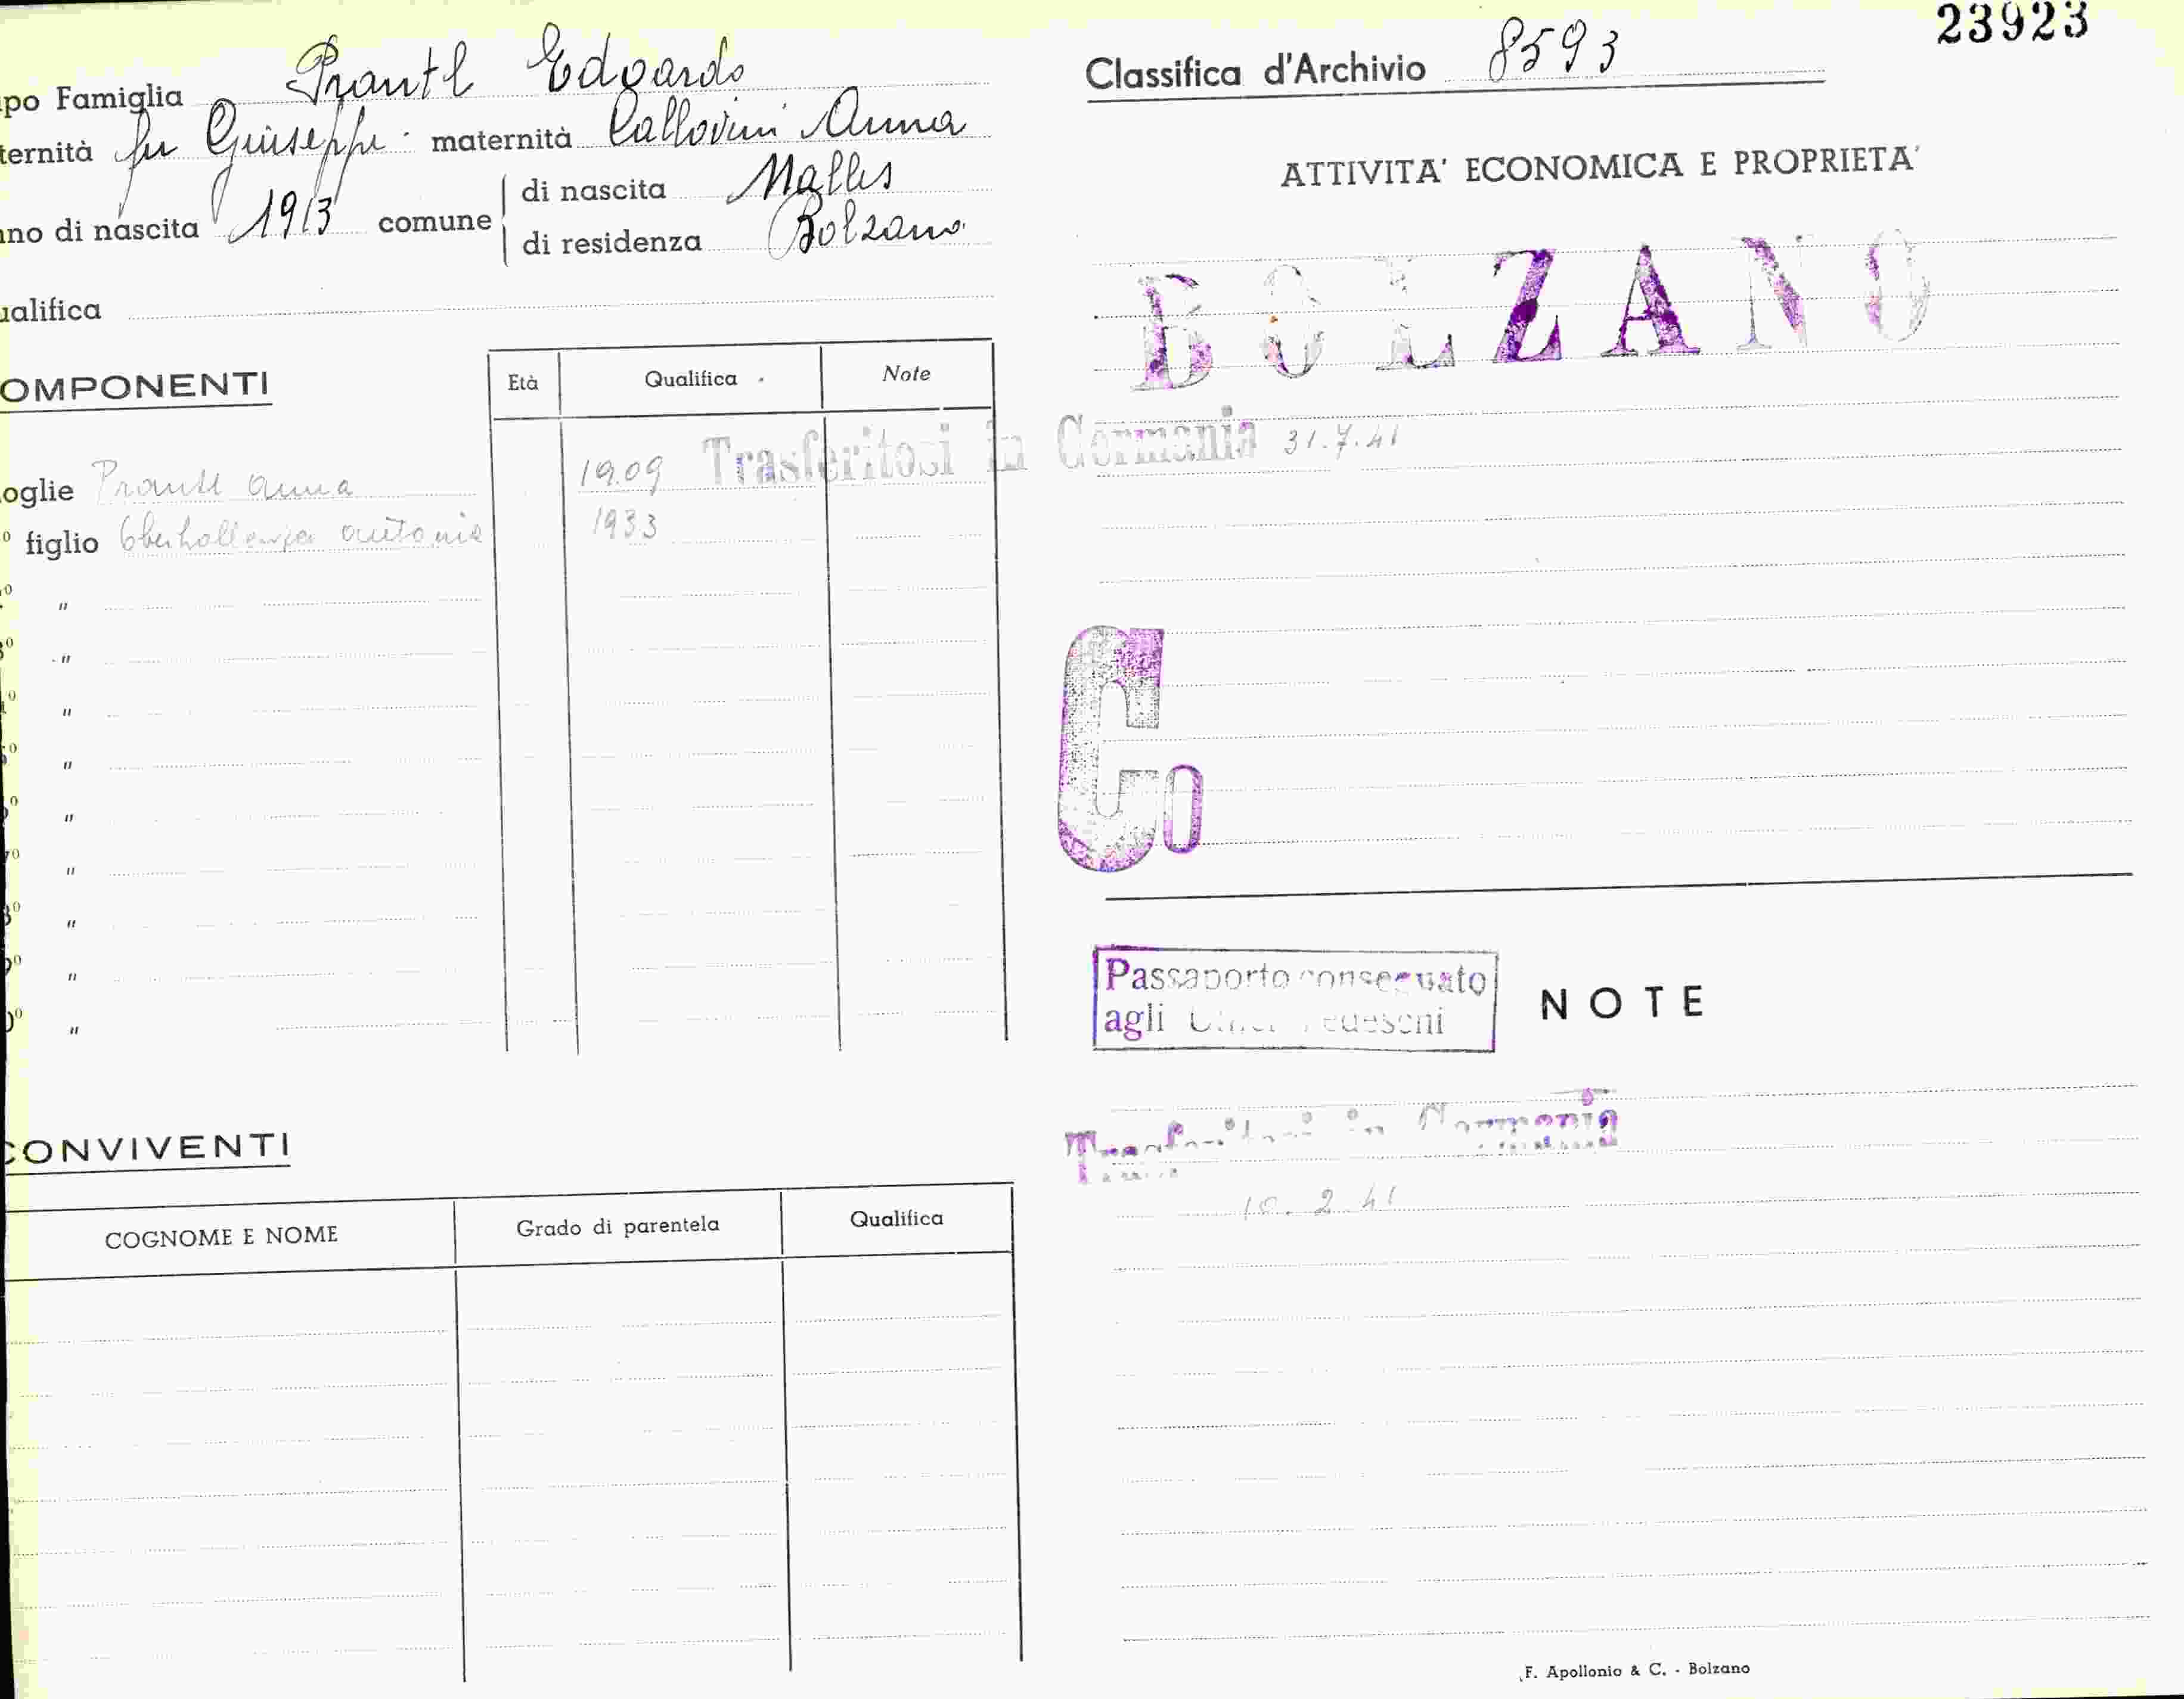 23923
po Famiglia Prantl Edoardo
ternità fu Giuseppe maternità Callovini Anna
nno di nascita 1913 comune
di nascita Malles
di residenza Bolzano
ualifica
OMPONENTI
Età Qualifica Note
oglie Prantl Anna 1909
figlio Oberhollenzer Antonia 1933
"
"
"
"
"
"
"
"
"
CONVIVENTI
COGNOME E NOME Grado di parentela Qualifica
Classifica d'Archivio 8593
ATTIVITA' ECONOMICA E PROPRIETA'
BOLZANO
Trasferitosi in Germania 31.7.41
Go
Passaporto consegnato
agli Uffici Tedeschi
NOTE
Trasferitosi in Germania
10.2.41
F. Apollonio & C. - Bolzano